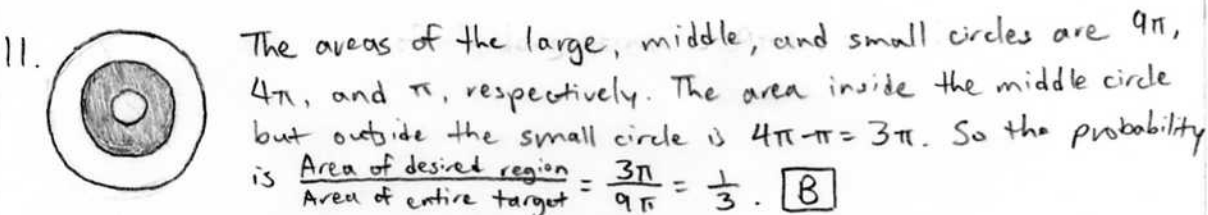 11. The areas of the large, middle, and small circles are 9π,
4π, and π, respectively. The area inside the middle circle
but outside the small circle is 4π-π=3π. So the probability
is Area of desired region / Area of entire target = 3π/9π = 1/3. B